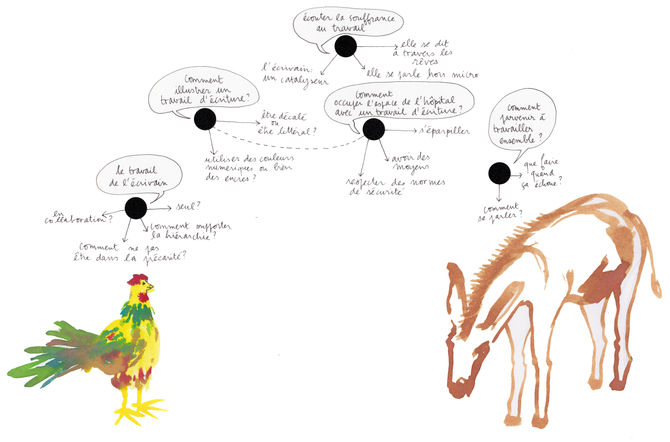 écouter la souffrance
au travail
elle se dit
à travers les
rêves
l'écrivain:
un catalyseur
elle se parle hors micro
comment
illustrer un
travail d'écriture?
être décalé
ou
être littéral?
utiliser des couleurs
numériques ou bien
des encres?
comment
occuper l'espace de l'hôpital
avec un travail d'écriture?
s'éparpiller
avoir des
moyens
respecter des normes
de sécurité
comment
parvenir à
travailler
ensemble?
que faire
quand
ça échoue?
comment
se parler?
le travail
de l'écrivain
seul?
en
collaboration?
comment supporter
la hiérarchie?
comment ne pas
être dans la précarité?